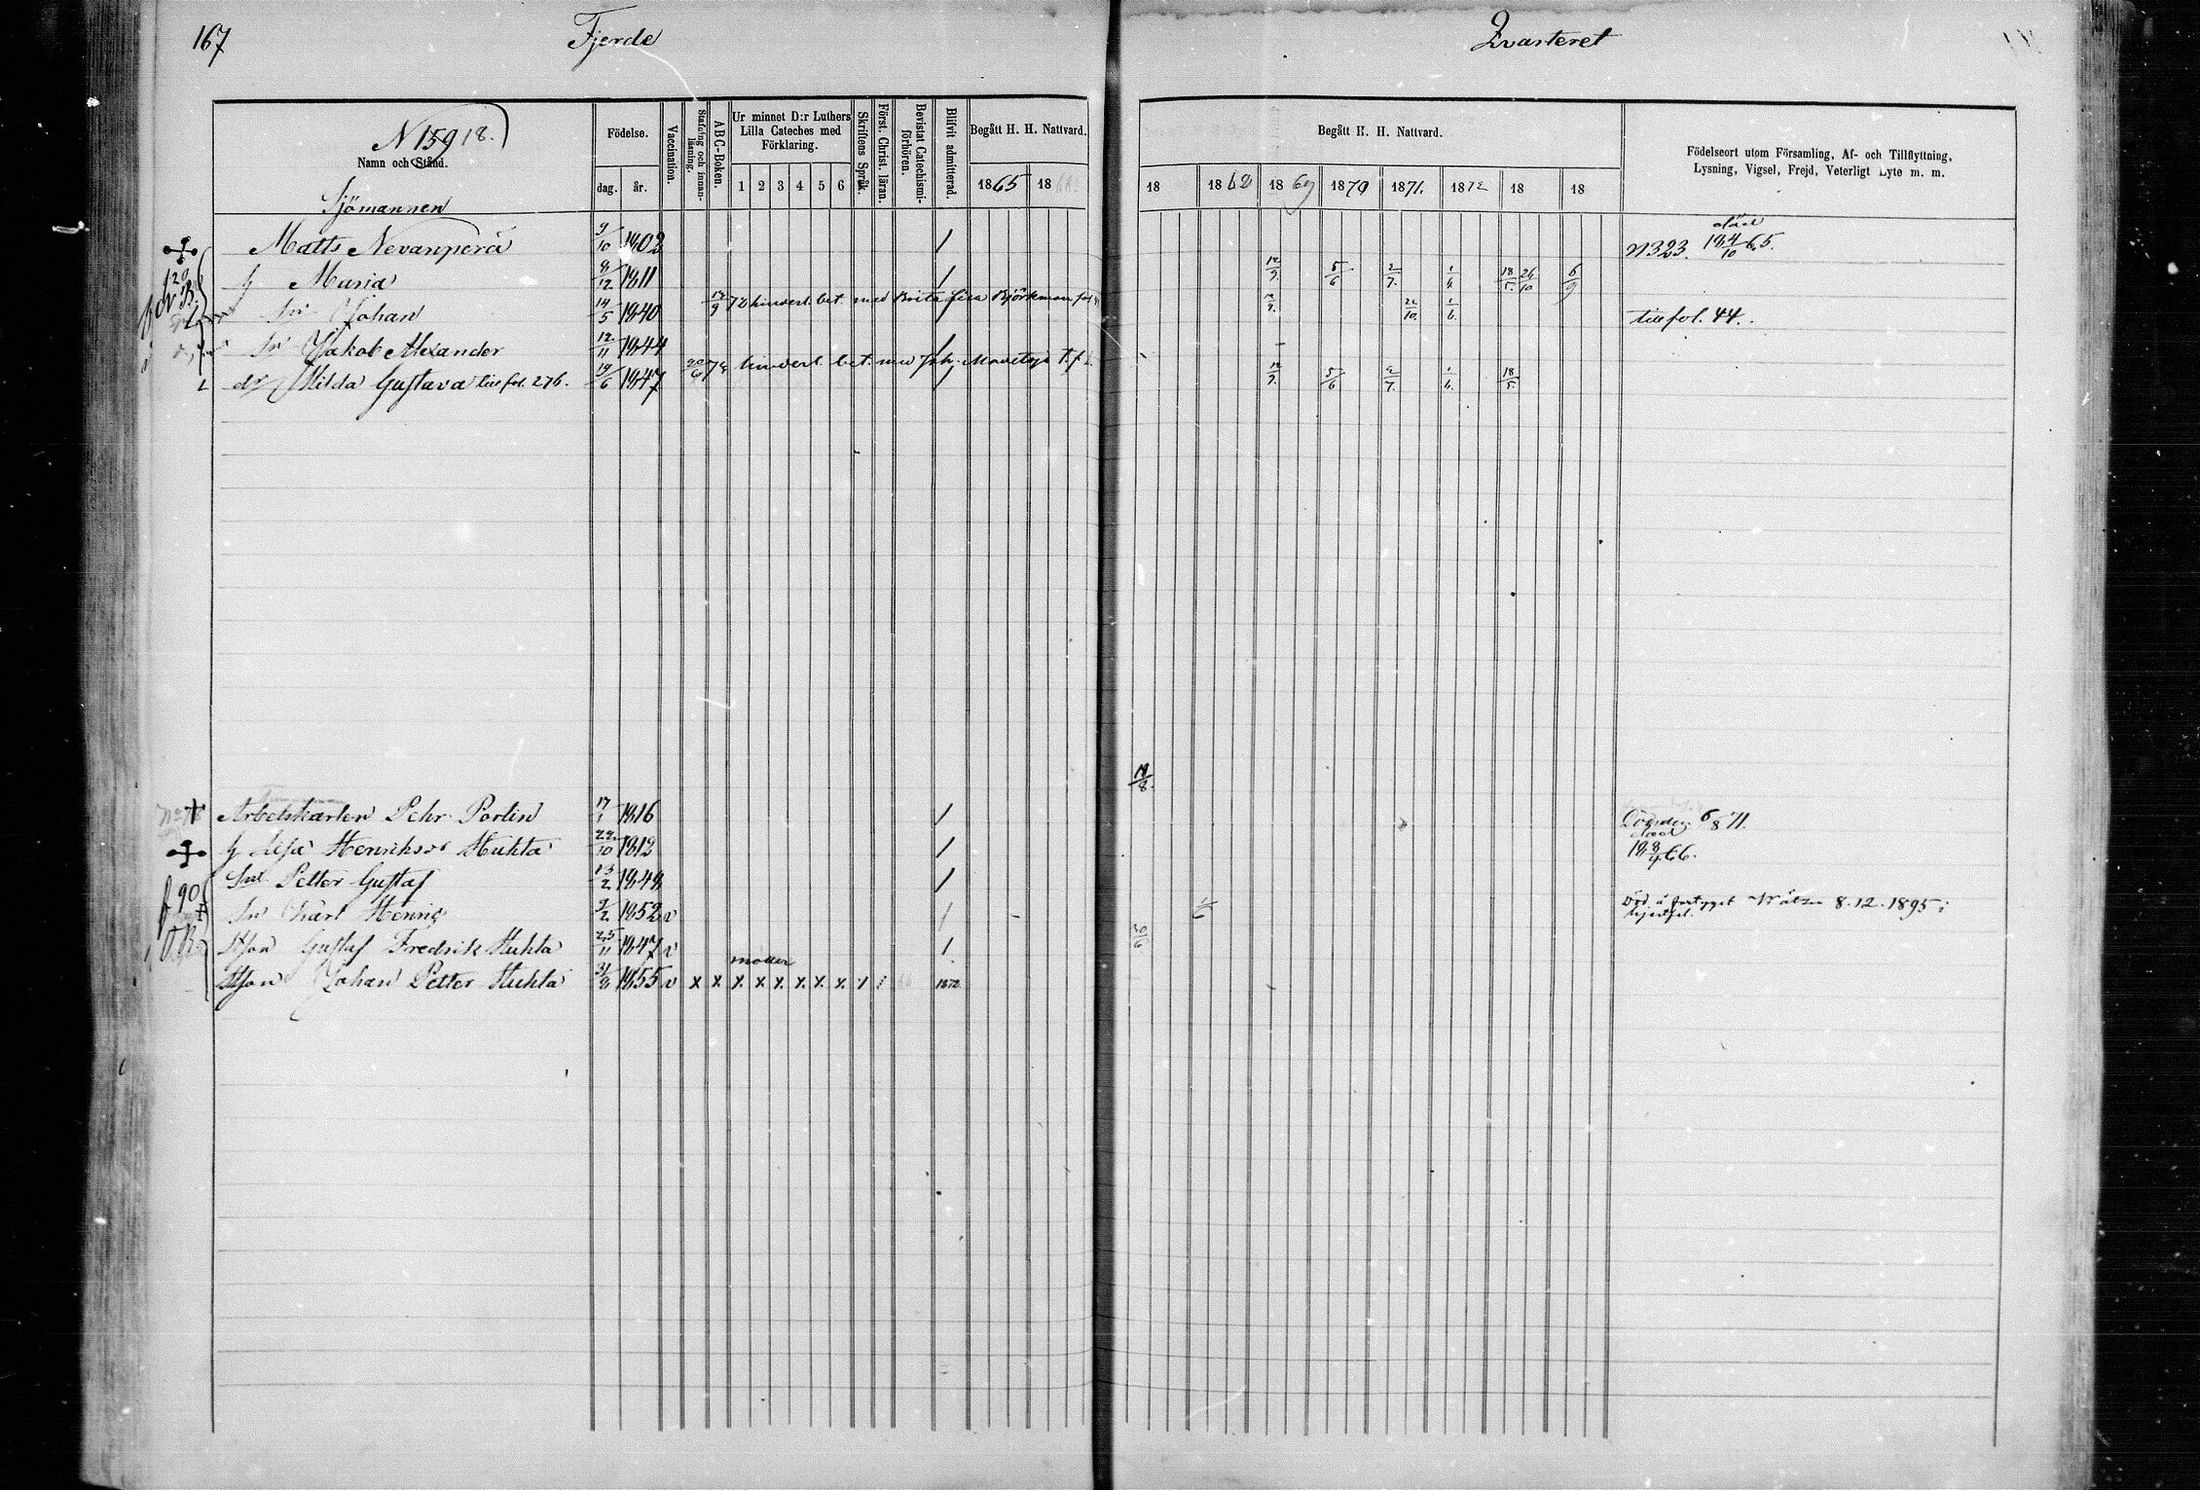 167 Fjerde Qvarteret
N 159 18.
Namn och Stånd.
Födelse.
dag. år.
Vaccination.
Stafning och innanläsning.
ABC-Boken.
Ur minnet D:r Luthers Lilla Cateches med Förklaring.
1 2 3 4 5 6
Skriftens Språk.
Först. Christ. läran.
Bevistat Catechismi-förhören.
Blifvit admitterad.
Begått H. H. Nattvard.
1865 18
Begått H. H. Nattvard.
18 18 1869 1870 1871. 1872 18 18
Födelseort utom Församling, Af- och Tillflyttning,
Lysning, Vigsel, Frejd, Veterligt Lyte m. m.
Sjömannen
Matts Nevanperä 9/10 1802 / N323. död 18 4/10 65.
h Maria 8/12 1811 / 12/9. 5/6 2/7. 1/6. 18/5. 26/10 5/9
Sn Johan 14/5 1840 12/9 72 hindersl. bet. med Brita Lisa Björkman 12/9. 22/10. 1/6. till fol. 44.
Sn Jakob Alexander 12/11 1844 /
dr Hilda Gustava till fol. 276. 19/6 1847 hindersl. bet. med Joh. 12/9. 5/6 2/7. 1/6. 18/5.
18/8.
Arbetskarlen Pehr Porlin 17/1 1816 / Död den 6/8 71.
h Lisa Henriksdr Huhta 22/10 1812 / död 18 8/9 66.
Son Petter Gustaf 13/2 1848 /
f 90
Sn Karl Henric 9/2 1852 v / 1/6 Död å fartyget 8.12.1895;
Stjson Gustaf Fredrik Huhta 25/11 1847 v / 30/6
Stjson Johan Petter Huhta 31/8 1855 v x x x x x x x x 1872.